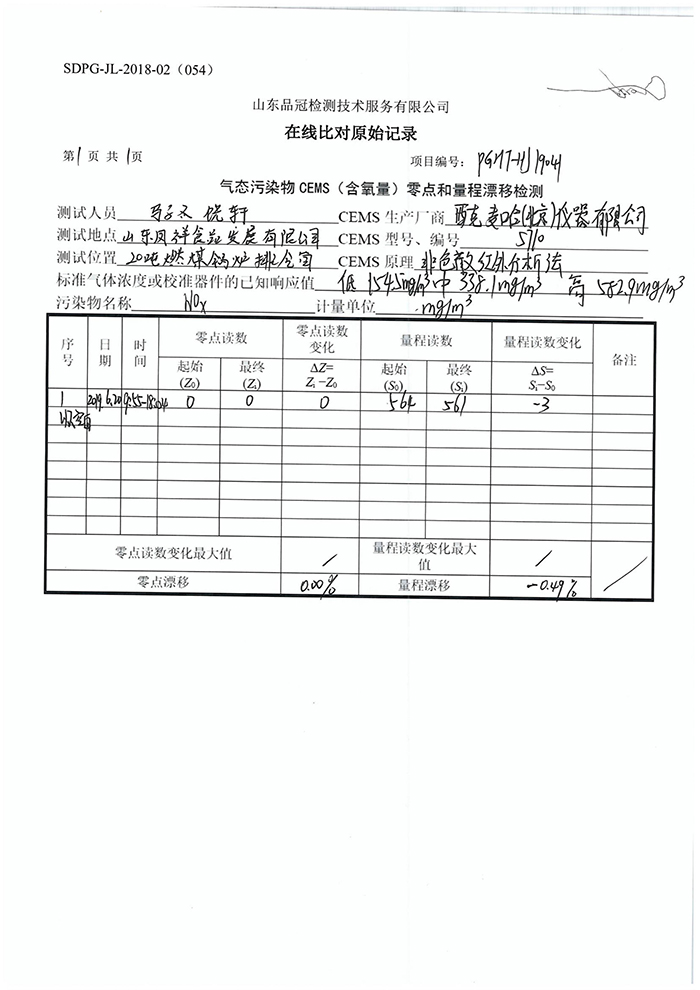 SDPG-JL-2018-02（054）
山东品冠检测技术服务有限公司
在线比对原始记录
第1页 共1页 项目编号：PGHT-HJ19041
气态污染物 CEMS（含氧量）零点和量程漂移检测
测试人员 CEMS 生产厂商 西克麦哈(北京)仪器有限公司
测试地点 山东凤祥食品发展有限公司 CEMS 型号、编号 S710
测试位置 20吨燃煤锅炉排 CEMS 原理 非色散红外分析法
标准气体浓度或校准器件的已知响应值 低 154.5mg/m³ 中 338.1mg/m³ 高 582.9mg/m³
污染物名称 NOx 计量单位 mg/m³
序号 日期 时间 零点读数 零点读数变化 量程读数 量程读数变化 备注
起始(Z₀) 最终(Zᵢ) ΔZ=Zᵢ-Z₀ 起始(S₀) 最终(Sᵢ) ΔS=Sᵢ-S₀
1 2019.6.20 0 0 0 564 561 -3
以下空白
零点读数变化最大值 / 量程读数变化最大值 / /
零点漂移 0.00% 量程漂移 -0.49%